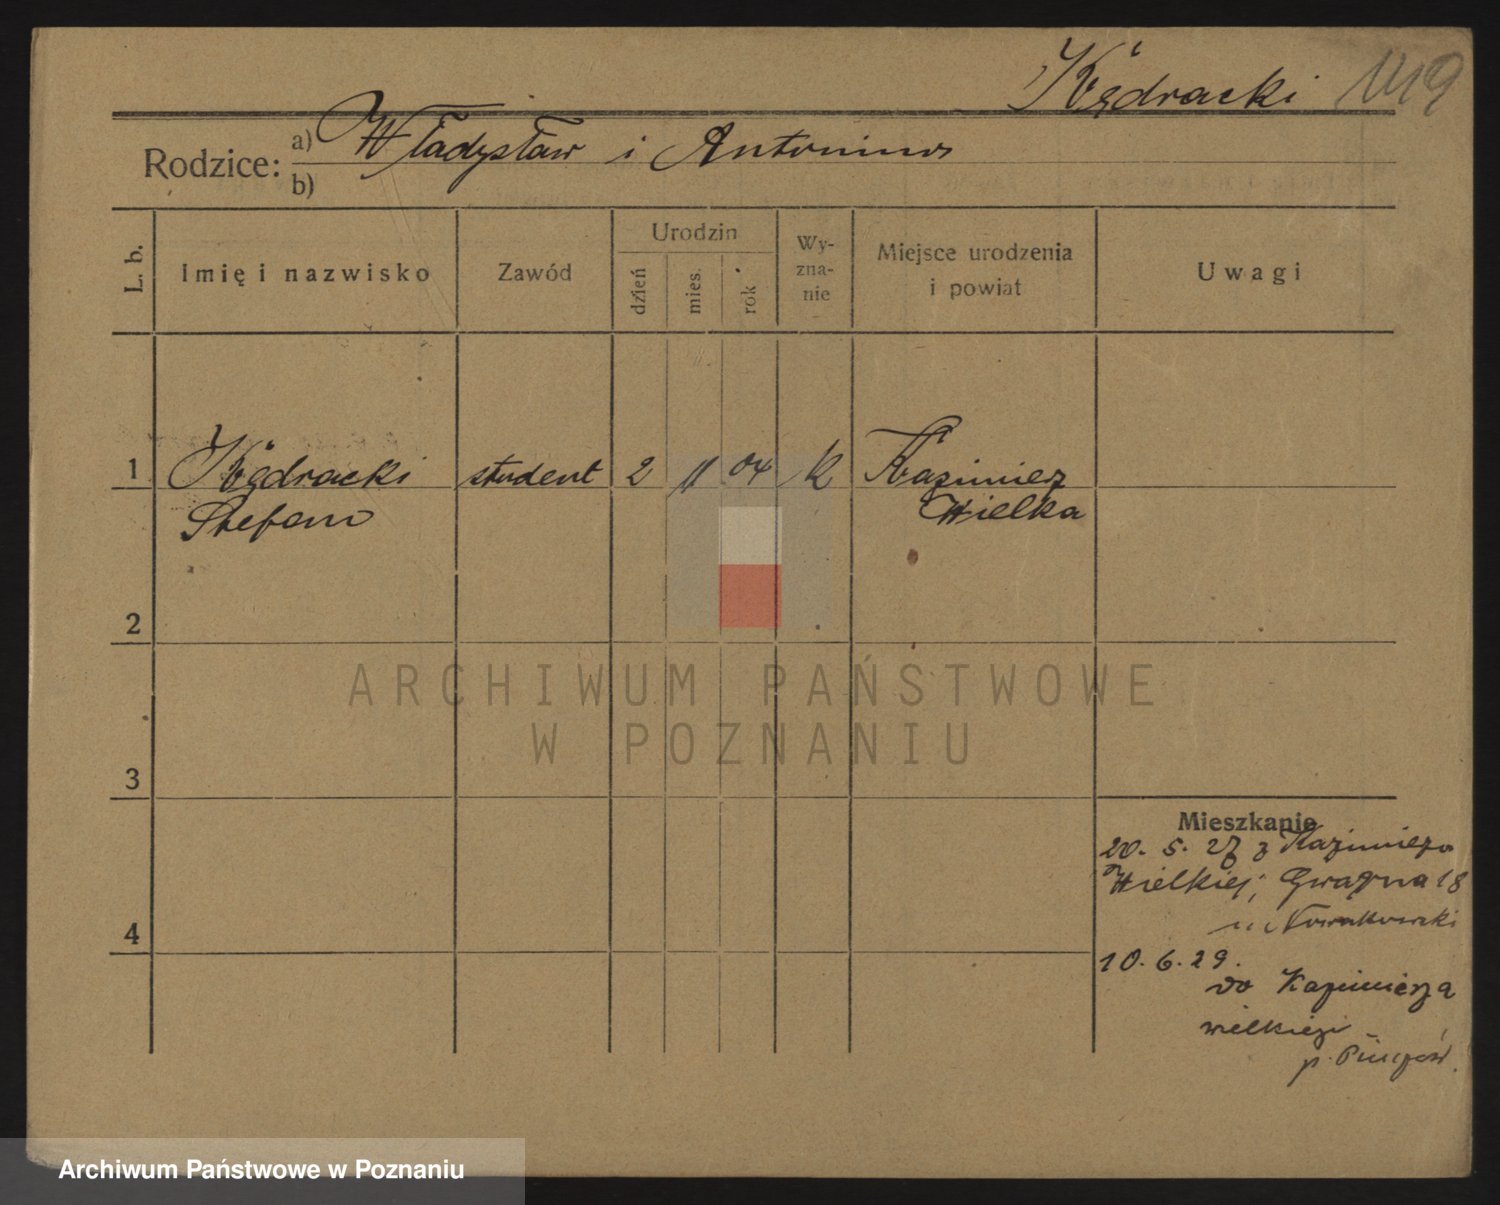 Kędracki 149
Rodzice: a) Władysław i Antonina
b)
L. b. Imię i nazwisko Zawód Urodzin dzień mies. rok Wy-zna-nie Miejsce urodzenia i powiat Uwagi
1 Kędracki student 2 11 04 k Kazimierz
Stefan Wielka
2
3
4
Mieszkanie
20. 5. 27 z Kazimierza
Wielkiej, Gwarna 18
u Nowakowski
10. 6. 29.
do Kazimierza
wielkiej
p. Pińczów.
ARCHIWUM PAŃSTWOWE
W POZNANIU
Archiwum Państwowe w Poznaniu